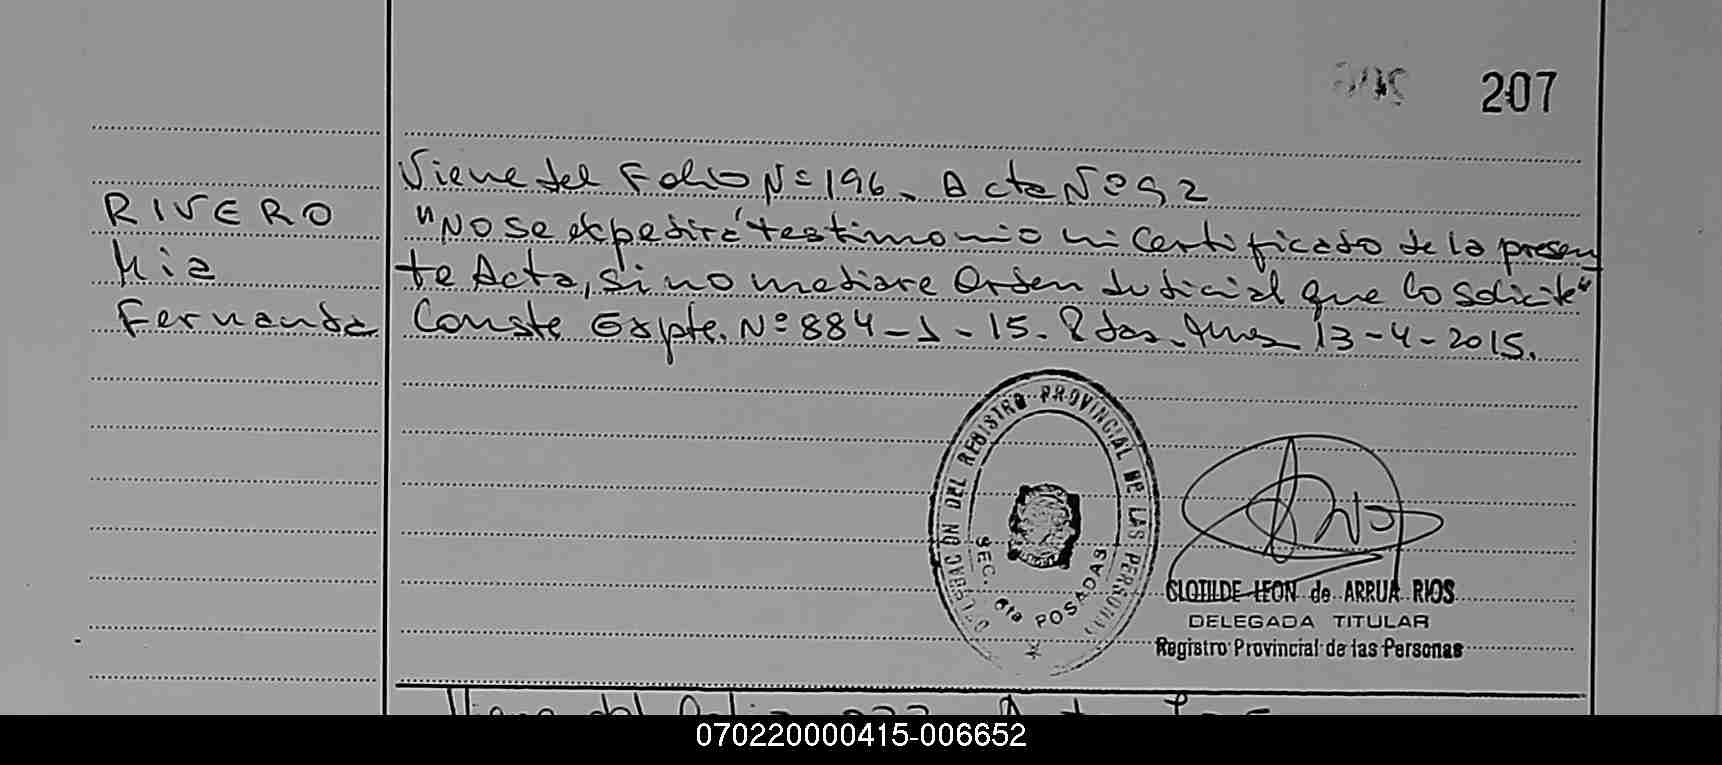 207
Viene del Folio Nº 196. Acta Nº 92
RIVERO
"No se expedirá testimonio ni Certificado de la presen
Mia
te Acta, si no mediare Orden Judicial que lo solicite"
Fernanda
Conste Expte. Nº 884-1-15. Pdas. Mnes 13-4-2015.
DELEGACION DEL REGISTRO PROVINCIAL DE LAS PERSONAS
SEC. 6ta POSADAS
CLOTILDE LEON de ARRUA RIOS
DELEGADA TITULAR
Registro Provincial de las Personas
070220000415-006652